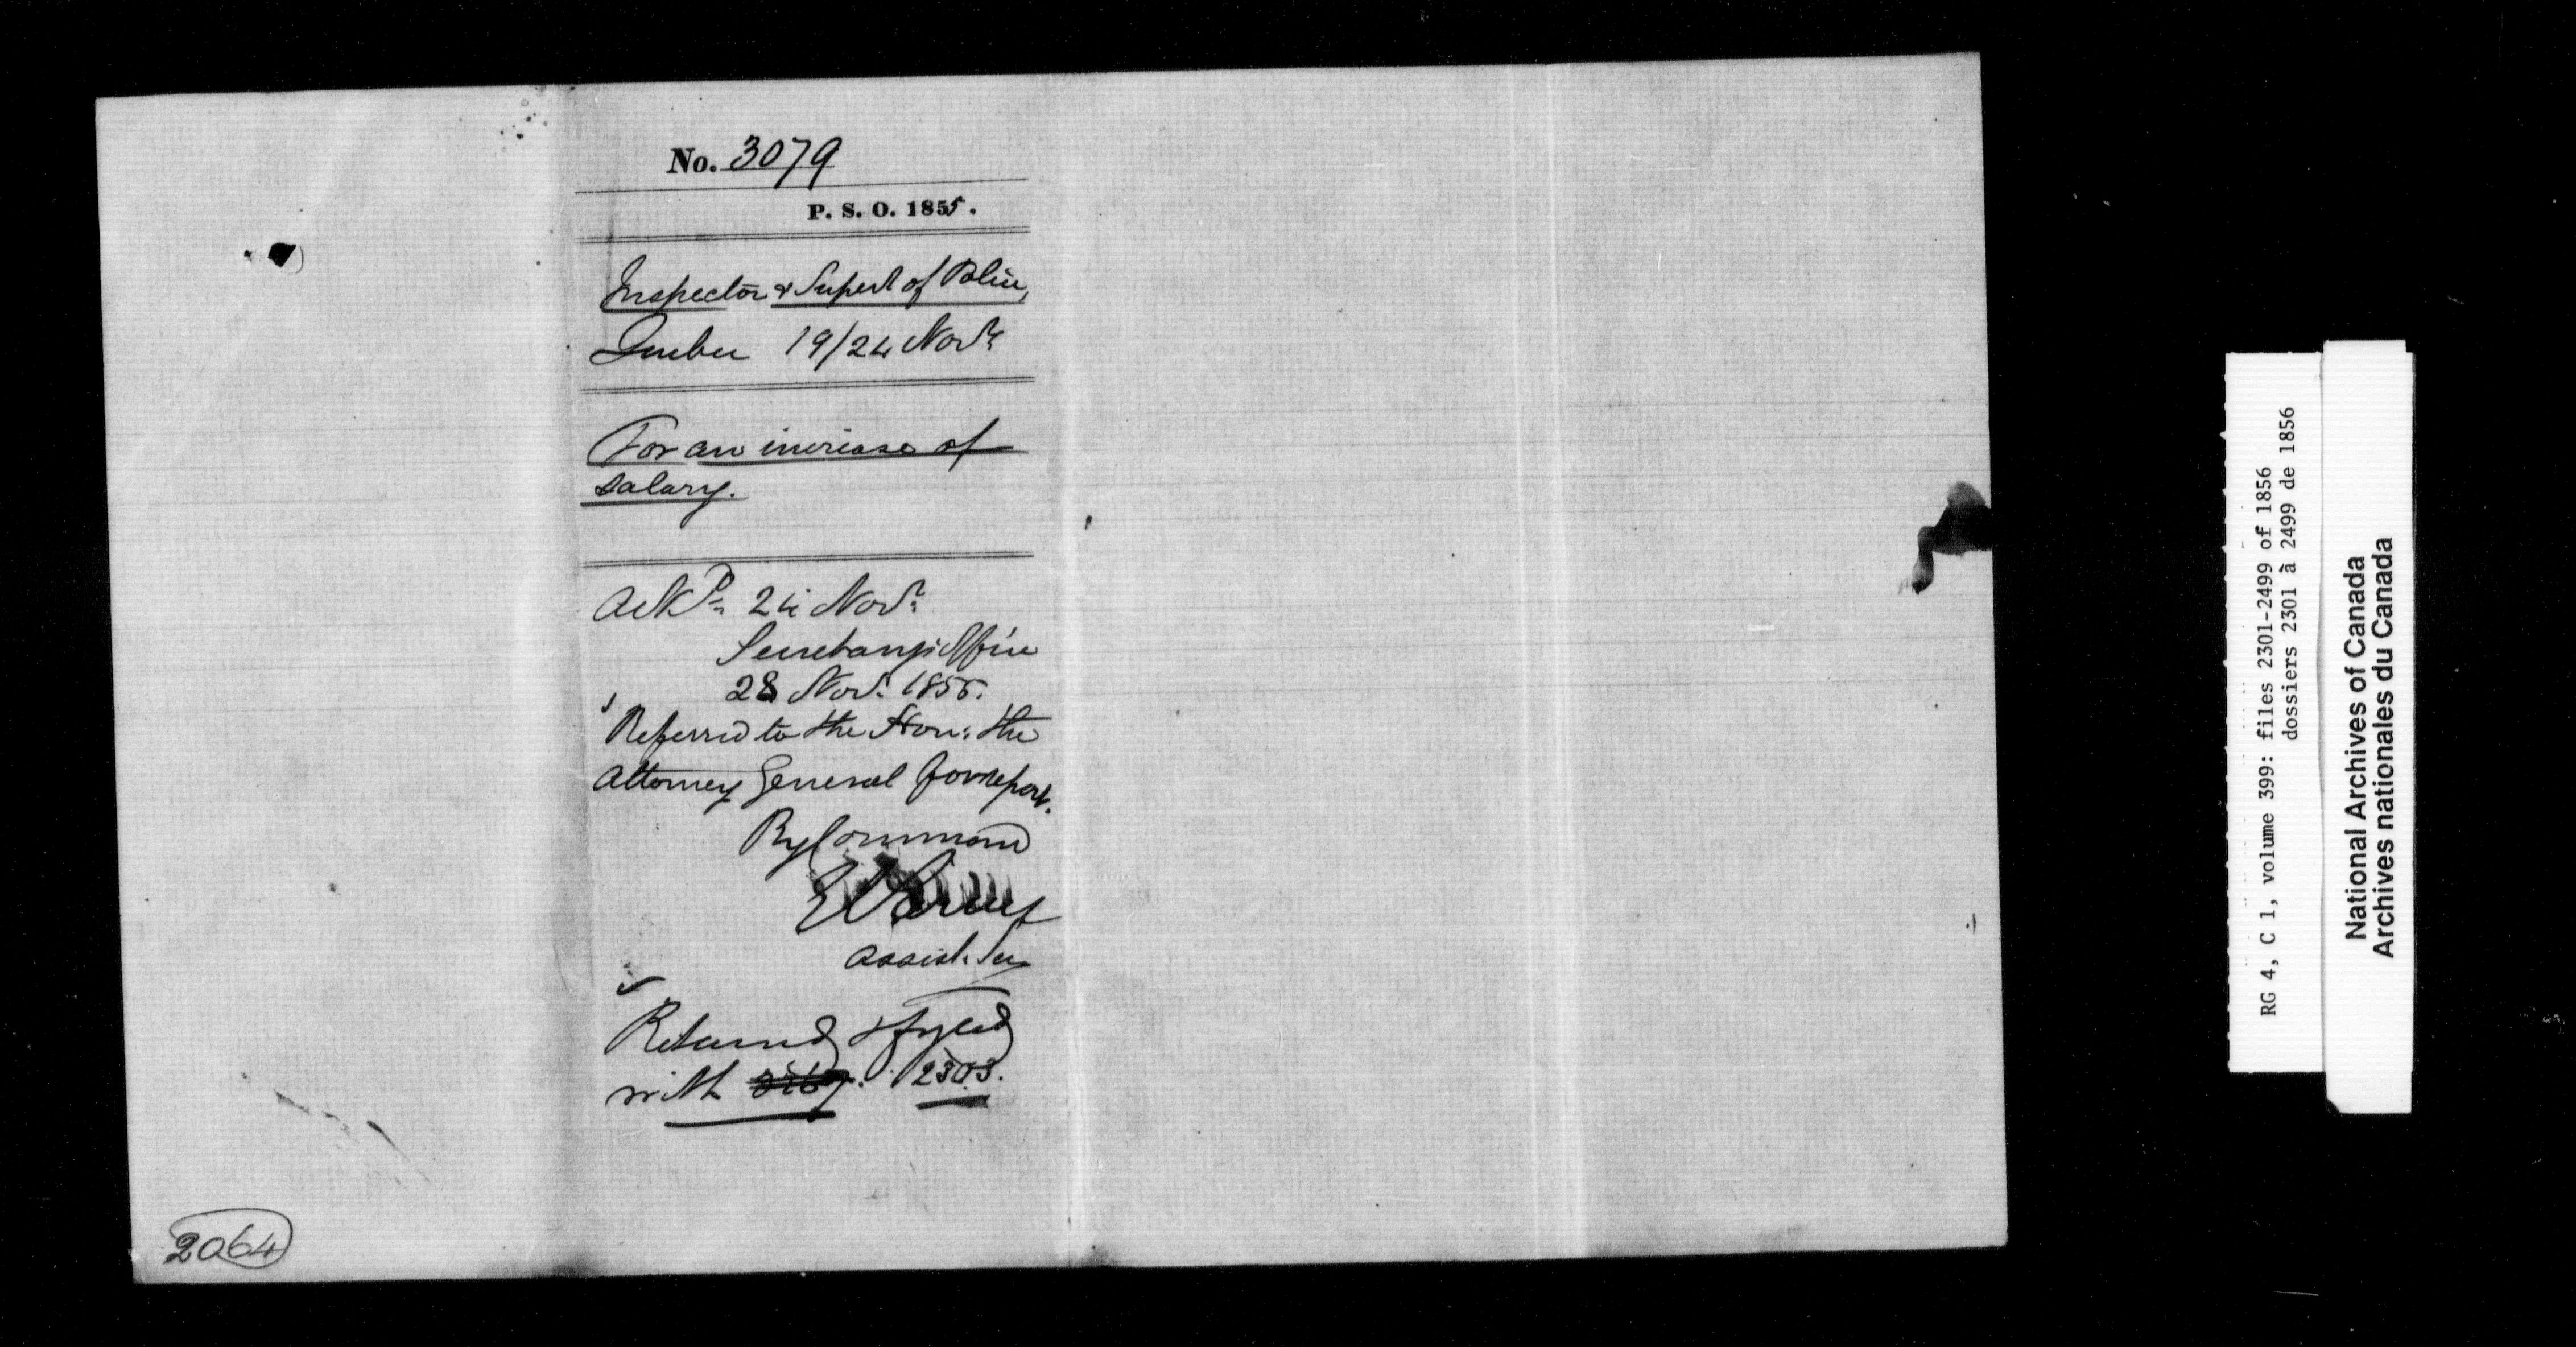 No. 3079
P. S. O. 1855.
Inspector & Supert of Police,
Quebec 19/24 Novr
For an increase of
salary.
Ackd 24 Novr
Secretary's Office
28 Nov. 1855.
Referred to the Hon: the
Attorney General for report.
By Command
Assist. Sec
Returned & fyled
with 2303.
2064
RG 4, C 1, volume 399: files 2301-2499 of 1856
dossiers 2301 à 2499 de 1856
National Archives of Canada
Archives nationales du Canada